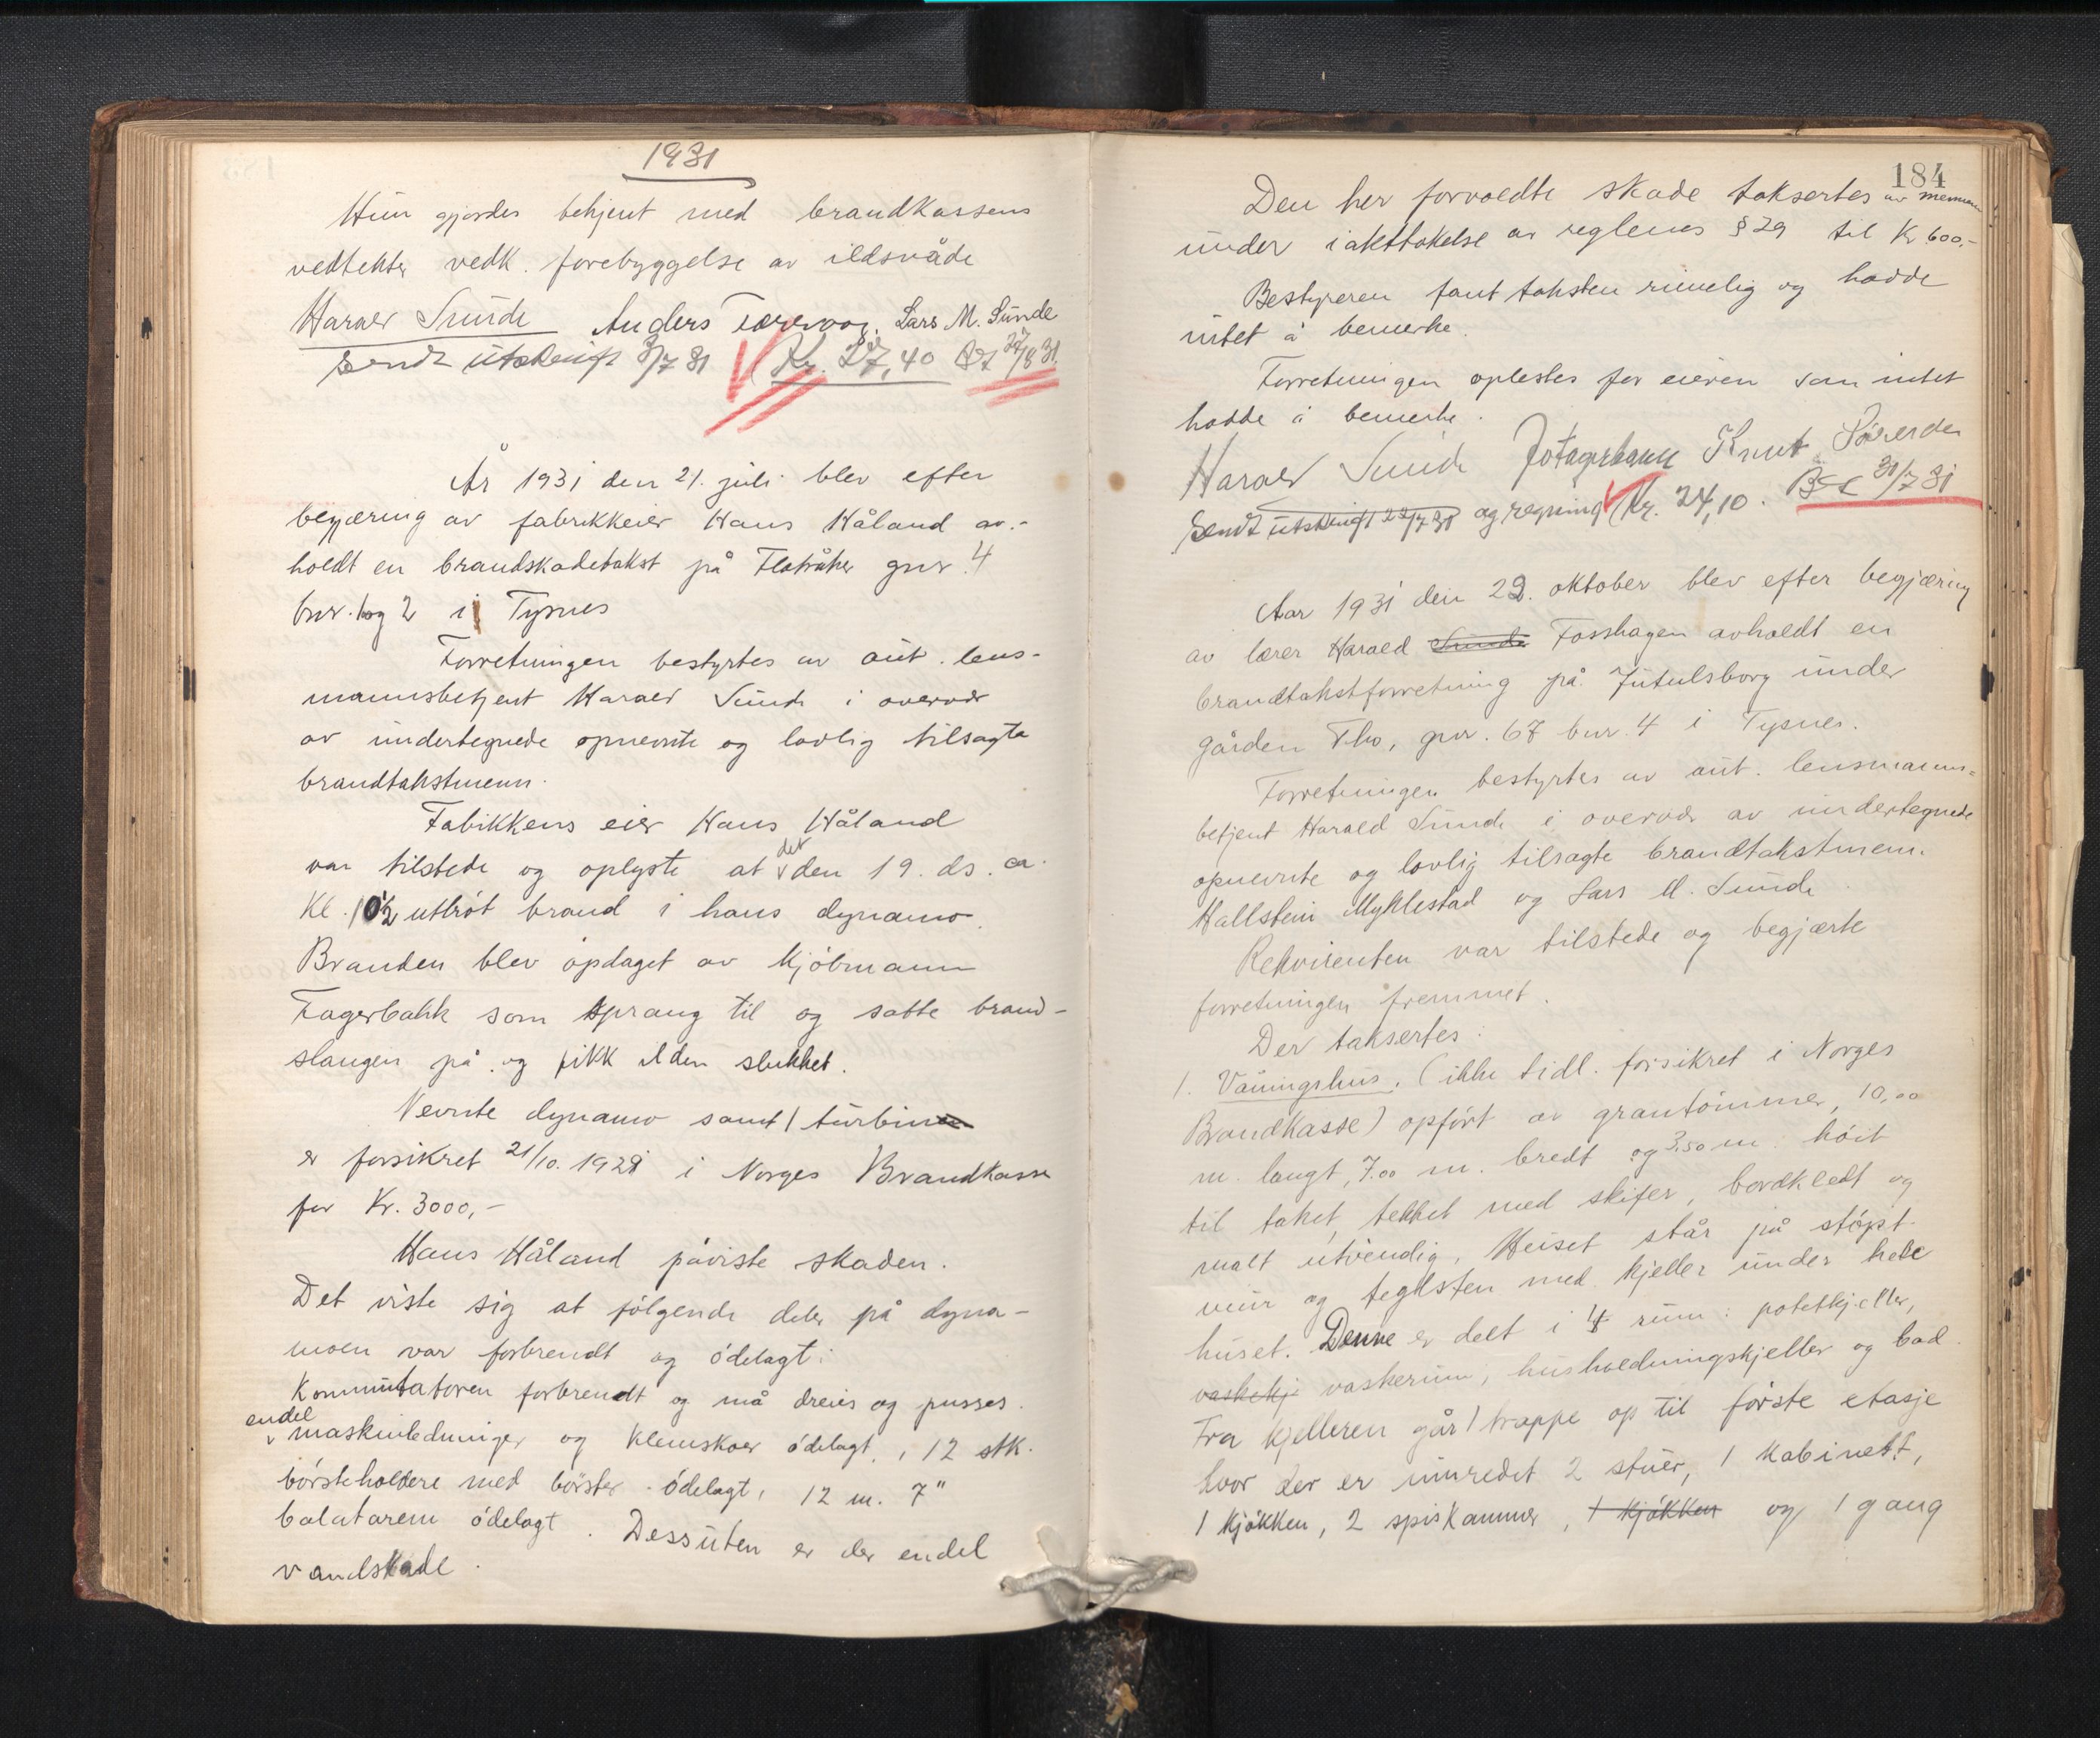 1931
Hun gjordes bekjent med brandkassens
vedtekter vedk. forebyggelse av ildsvåde
Harald Sunde Anders Lars M. Sunde
Sendt utskrift 3/7 31 Kr. 27,40 31
År 1931 den 21. juli blev efter
begjæring av fabrikkeier Hans Håland av-
holdt en brandskadetakst på Flatråker gnr. 4
bnr. 1 og 2 i Tysnes
Forretningen bestyrtes av aut. lens-
mannsbetjent Harald Sunde i overvær
av undertegnede opnevnte og lovlig tilsagte
brandtakstmenn.
Fabikkens eier Hans Håland
var tilstede og oplyste at det den 19. ds. ca.
Kl. 10½ utbrøt brand i hans dynamo.
Branden blev opdaget av kjøbmann
Fagerbakk som sprang til og satte brand-
slangen på og fikk ilden slukket.
Nevnte dynamo samt 1 turbin
er forsikret 21/10. 1928 i Norges Brandkasse
for Kr. 3000,-
Hans Håland påviste skaden.
Det viste sig at følgende deler på dyna-
moen var forbrendt og ødelagt:
Kommutatoren forbrendt og må dreies og pusses.
endel maskinledninger og klemskoer ødelagt, 12 stk.
børsteholdere med børster ødelagt, 12 m. 7"
balatarem ødelagt. Dessuten er der endel
vandskade.
184
Den her forvoldte skade taksertes av mennene
under iakttakelse av reglenes § 29 til Kr 600,-
Bestyreren fant taksten rimelig og hadde
intet å bemerke.
Forretningen oplestes for eieren som intet
hadde å bemerke.
Harald Sunde Jo Fagerbakk Knut
Sendt utskrift 22/7 31 og regning Kr. 24,10. 31/7 31
Aar 1931 den 22. oktober blev efter begjæring
av lærer Harald Sunde Fosshagen avholdt en
brandtakstforretning på Jutulsborg under
gården Tho, gnr. 67 bnr. 4 i Tysnes.
Forretningen bestyrtes av aut. lensmanns-
betjent Harald Sunde i overvær av undertegnede
opnevnte og lovlig tilsagte brandtakstmenn.
Hallstein Myklestad og Lars M. Sunde
Rekvirenten var tilstede og begjærte
forretningen fremmet.
Der taksertes:
1. Våningshus. (ikke tidl. forsikret i Norges
Brandkasse) opført av grantømmer, 10,00
m. langt, 7.00 m. bredt og 3.50 m. høit
til taket, tekket med skifer, bordkledt og
malt utvendig. Huset står på støpt
mur og teglsten med kjeller under hele
huset. Denne er delt i 4 rum: potetkjeller,
vaskekj vaskerum, husholdningskjeller og bad.
Fra kjelleren går 1 trappe op til første etasje
hvor der er innredet 2 stuer, 1 kabinett,
1 kjøkken, 2 spiskammer, 1 kjøkken og 1 gang